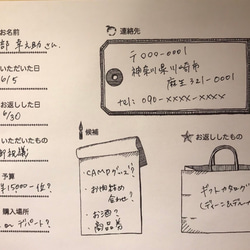 お名前
部 幸之助 さん
いただいた日
6/5
お返しした日
6/30
いただいたもの
御祝儀
予算
¥15000-位?
購入場所
or デパート?
連絡先
〒000-0001
神奈川県川崎市
麻生321-0001
tel: 090-xxxx-xxxx
候補
・CAMPグッズ?
・お肉詰め
合わせ?
・お酒?
商品券
お返ししたもの
ギフトカタログ